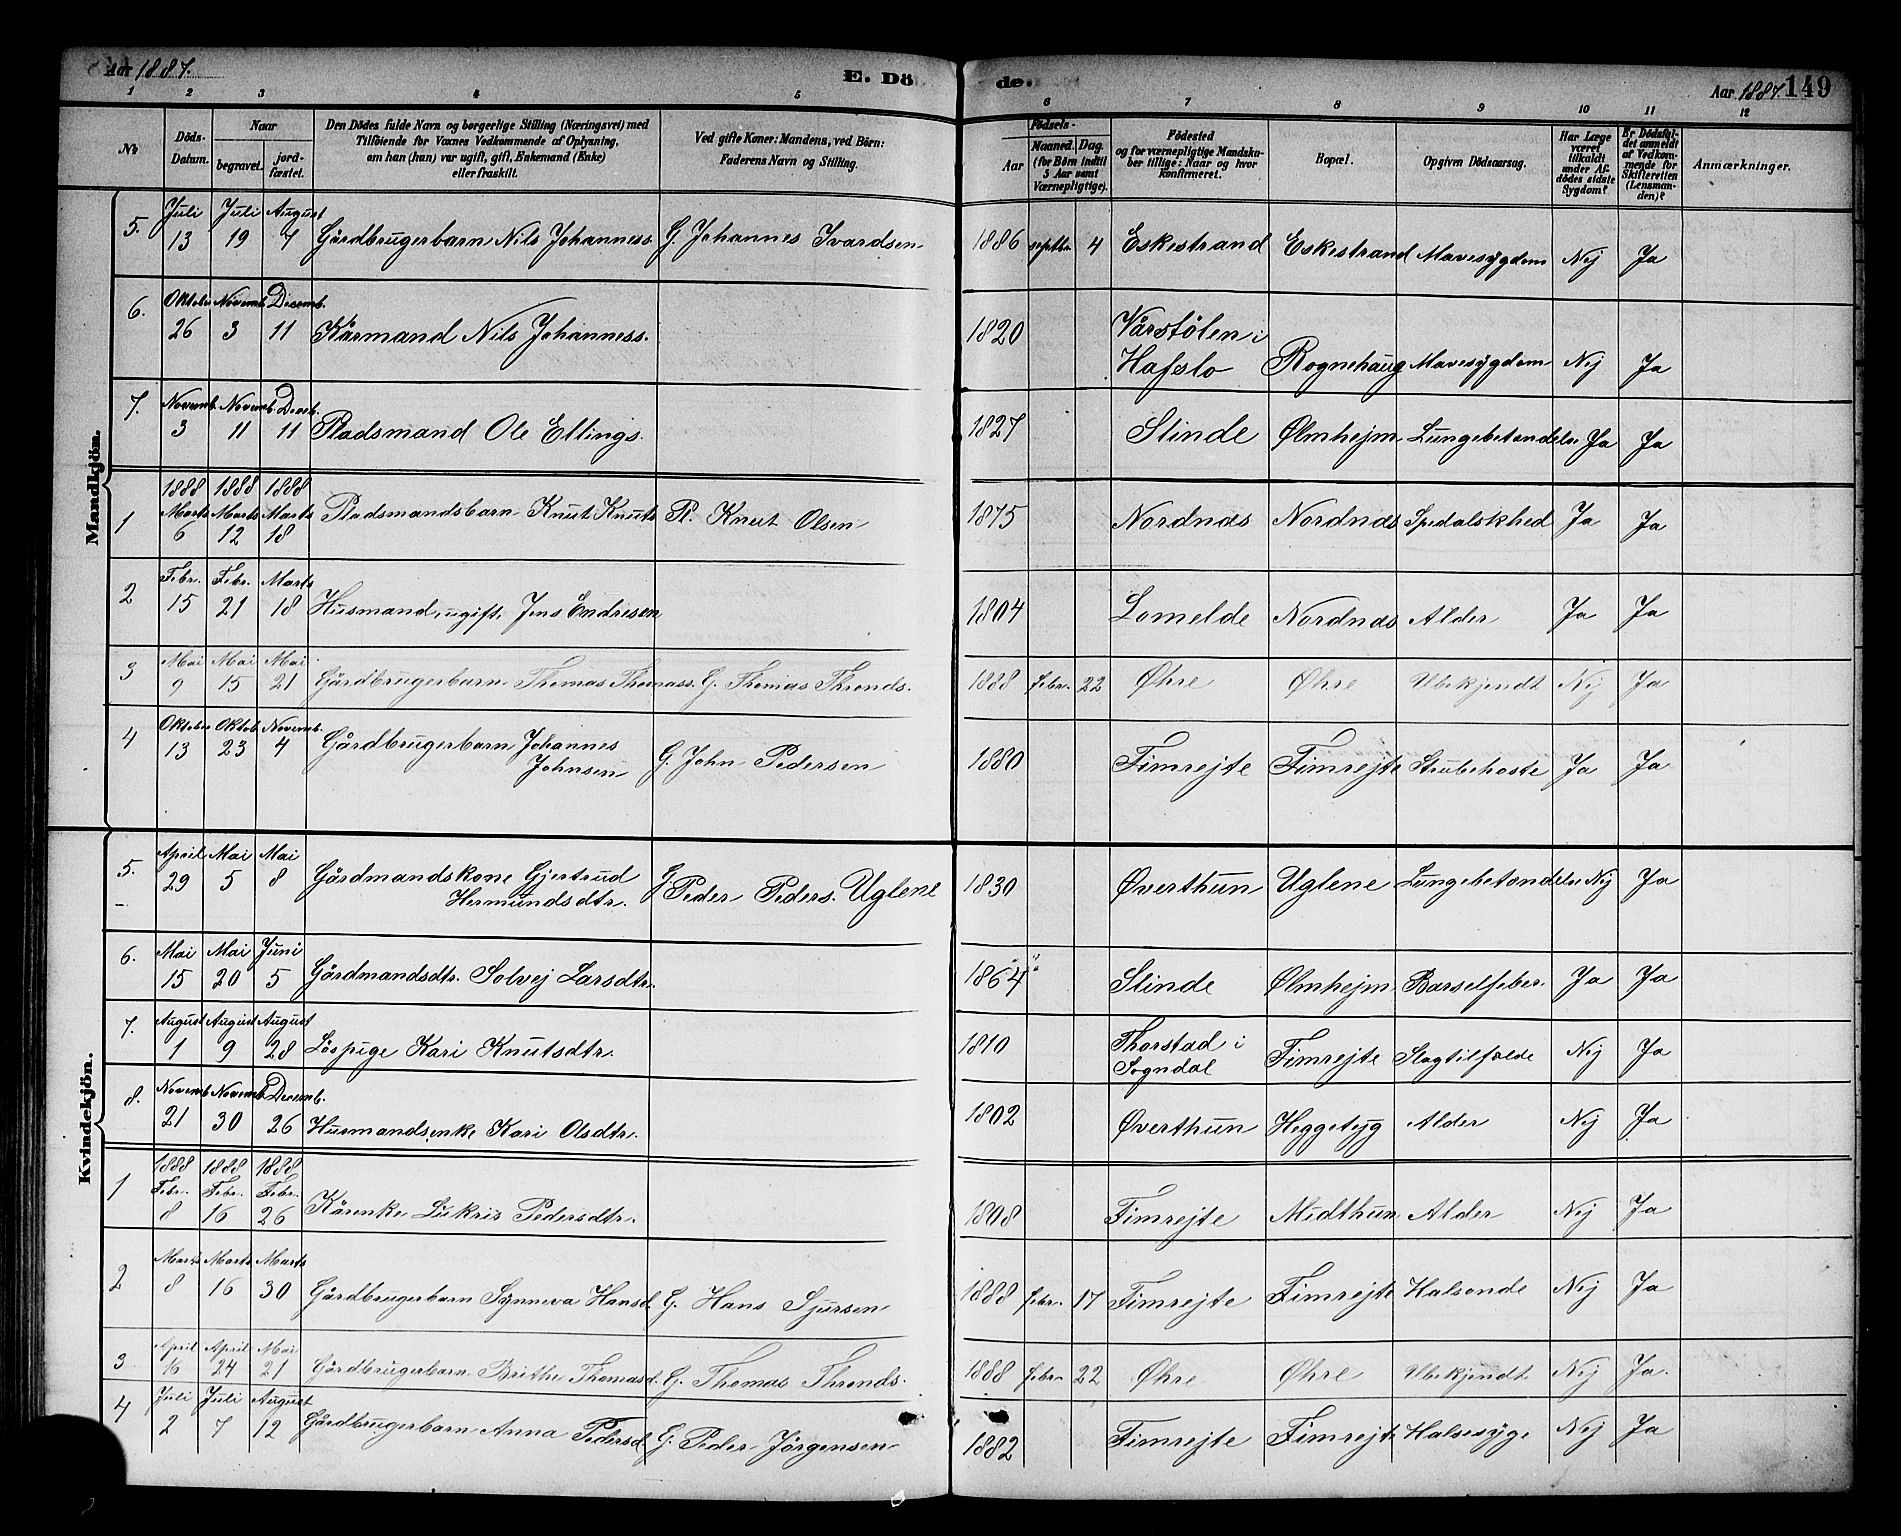 Aar 1887.
E. Döde.
Aar 1887. 149
1 2 3 4 5 6 7 8 9 10 11 12
No
Döds-Datum.
Naar
begravet.
jordfæstet.
Den Dödes fulde Navn og borgerlige Stilling (Næringsvei) med
Tilföiende for Voxnes Vedkommende af Oplysning,
om han (hun) var ugift, gift, Enkemand (Enke)
eller fraskilt.
Ved gifte Koner: Mandens, ved Börn:
Faderens Navn og Stilling.
Födsels-
Aar
Maaned. Dag.
(for Börn indtil
5 Aar samt
Værnepligtige).
Födested
og for værnepligtige Mandskaber
tillige: Naar og hvor
konfirmeret.
Bopæl.
Opgiven Dödsaarsag.
Har Læge
været
tilkaldt
under Afdödes
sidste
Sygdom?
Er Dödsfaldet
anmeldt
af Vedkommende
for
Skifteretten
(Lensmanden)?
Anmærkninger.
Mandkjön.
5. Juli 13 Juli 19 August 7 Gårdbrugerbarn Nils Johanness. G. Johannes Ivardsen 1886 septbr. 4 Eskestrand Eskestrand Mavesygdom Nej Ja
6. Oktober 26 Novemb. 3 Decemb. 11 Kårmand Nils Johanness. 1820 Vårstölen i Hafslo Rognehaug Mavesygdom Nej Ja
7. Novemb. 3 Novemb. 11 Decmb. 11 Pladsmand Ole Ellings. 1827 Slinde Ølmhejm Lungebetændelse Ja Ja
1 1888 Marts 6 1888 Marts 12 1888 Marts 18 Pladsmandsbarn Knut Knuts Pl. Knut Olsen 1875 Nordnæs Nordnæs Spedalskhed Ja Ja
2 Febr. 15 Febr. 21 Marts 18 Husmand, ugift, Jens Endresen 1804 Lomelde Nordnæs Alder Ja Ja
3 Mai 9 Mai 15 Mai 21 Gårdbrugerbarn Thomas Thomass. G. Thomas Thronds. 1888 febr. 22 Øhre Øhre Ubekjendt Nej Ja
4 Oktober 13 Oktob. 23 Novemb. 4 Gårdbrugerbarn Johannes Johnsen G. John Pedersen 1880 Fimrejte Fimrejte Strubehoste Ja Ja
Kvindekjön.
5. April 29 Mai 5 Mai 8 Gårdmandskone Gjertrud Hermundsdtr. G Peder Peders. Uglene 1830 Øverthun Uglene Lungebetændelse Nej Ja
6. Mai 15 Mai 20 Juni 5 Gårdmandsdtr. Solvej Larsdtr. 1864 Slinde Ølmhejm Barselfeber. Ja Ja
7. August 1 August 9 August 28 Löspige Kari Knutsdtr. 1810 Thorstad i Sogndal Fimrejte Slagtilfælde Nej Ja
8. Novemb. 21 Novemb. 30 Decemb. 26 Husmandsenke Kari Olsdtr. 1802 Øverthun Heggetyg Alder Nej Ja
1 1888 Febr. 8 1888 Febr. 16 1888 Febr. 26 Kårenke Lukris Pedersdtr. 1808 Fimrejte Midthun Alder Nej Ja
2 Marts 8 Marts 16 Marts 30 Gårdbrugerbarn Synneva Hansd. G. Hans Sjursen 1888 febr. 17 Fimrejte Fimrejte Halsonde Nej Ja
3 April 16 April 24 Mai 21 Gårdbrugerbarn Brithe Thomasd. G. Thomas Thronds. 1888 febr. 22 Øhre Øhre Ubekjendt Nej Ja.
4 Juli 2 Juli 7 August 12 Gårdbrugerbarn Anna Pedersd. G. Peder Jörgensen 1882 Fimrejte Fimrejte Halssyge Nej Ja